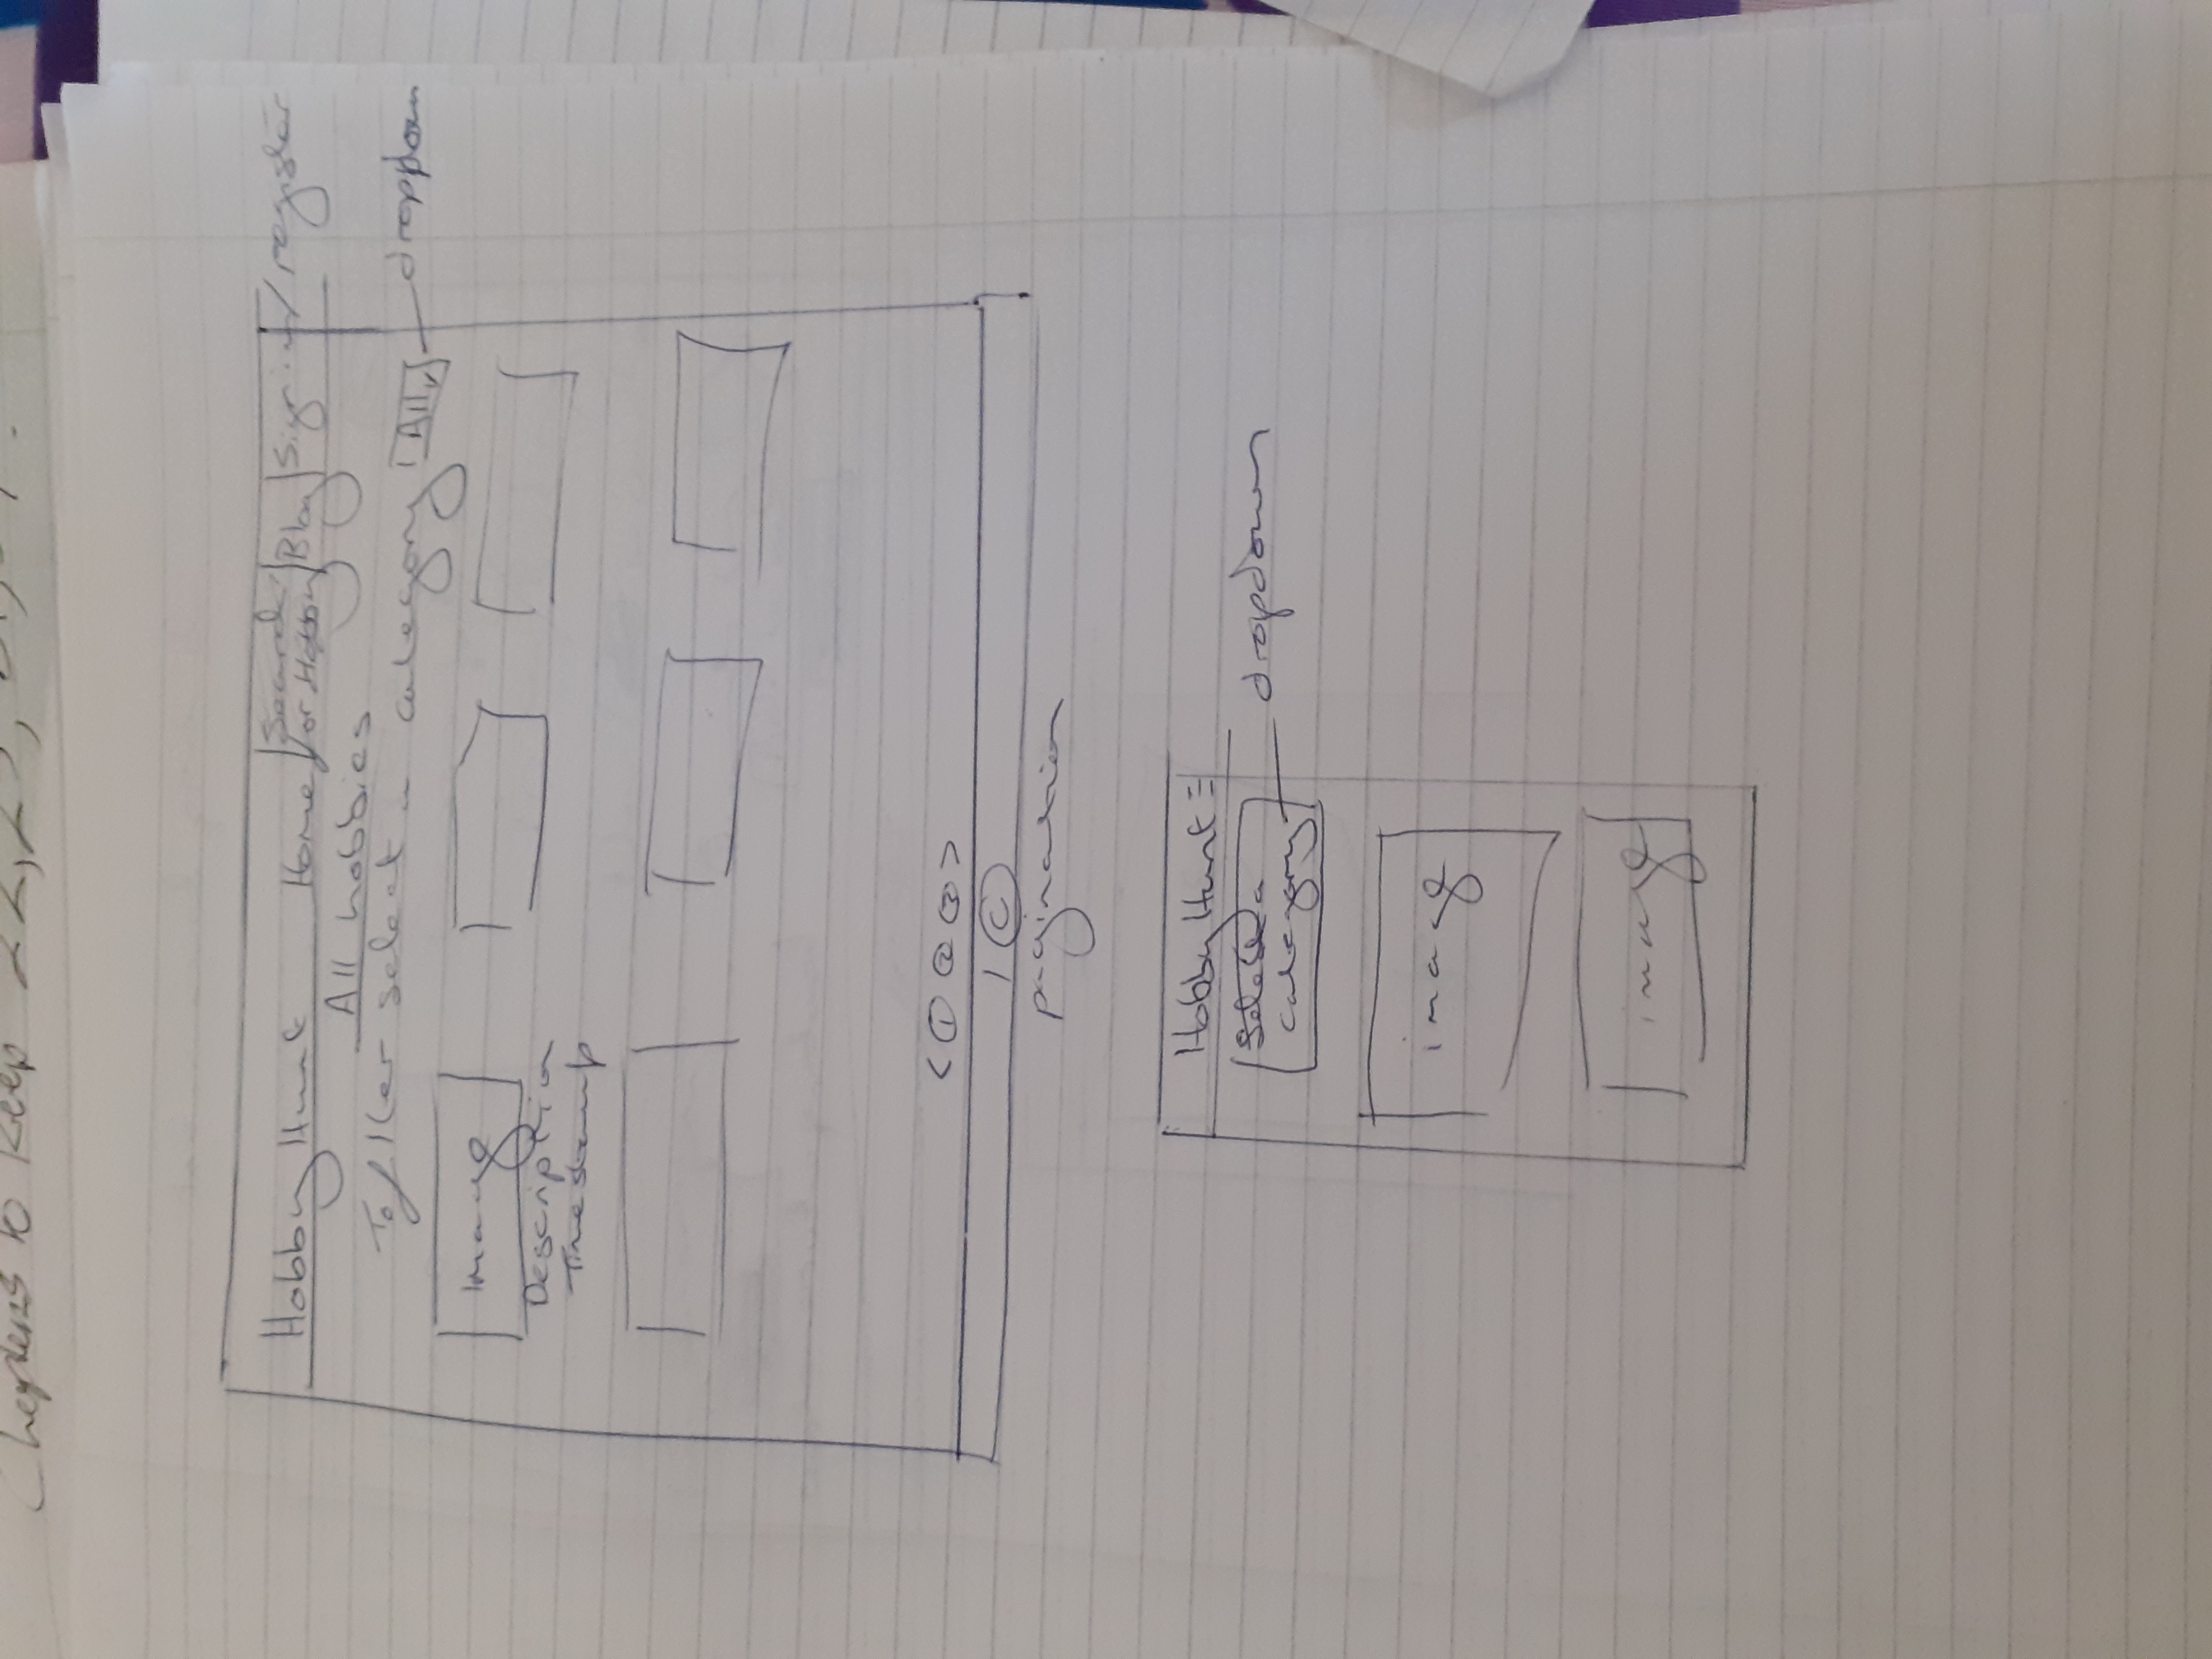 Chapters to Keep 22, 23,
Hobby Hunt Home Search for Hobby Blog Sign in / register
All hobbies
To filter select a category All dropdown
Image
Description
Timestamp
< 1 2 3 >
©
pagination
Hobby Hunt
Select a
category
dropdown
image
image